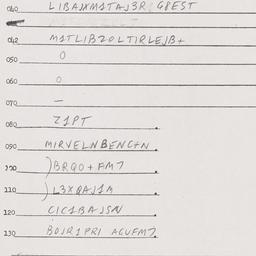 040 LIBAJXM1TAJ3R GPEST
042 M1TLIB2OLTIRLEJB+
050 0
060 0
070 —
080 Z1PT
090 MIRVELNBENC+N
100 )BRQO+FM7
110 )L3XQAJ1A
120 CIC1BAJSN
130 BOJR1PRI ACUFM7